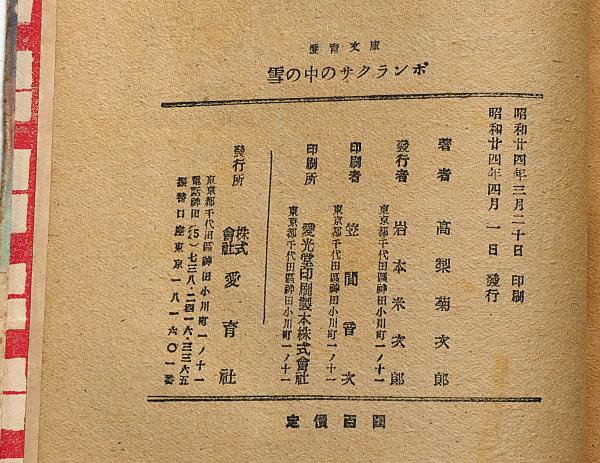 愛育文庫
雪の中のサクランボ
昭和廿四年三月二十日 印刷
昭和廿四年四月一日 發行
著者 高梨菊次郎
發行者 岩本米次郎
東京都千代田區神田小川町一ノ十一
印刷者 笠間音次
東京都千代田區神田小川町一ノ十一
印刷所 愛光堂印刷製本株式會社
東京都千代田區神田小川町一ノ十一
發行所 株式會社 愛育社
東京都千代田區神田小川町一ノ十一
電話神田(25)七三八・二四一六・三三六五
振替口座東京一八一六〇一番
定價百圓